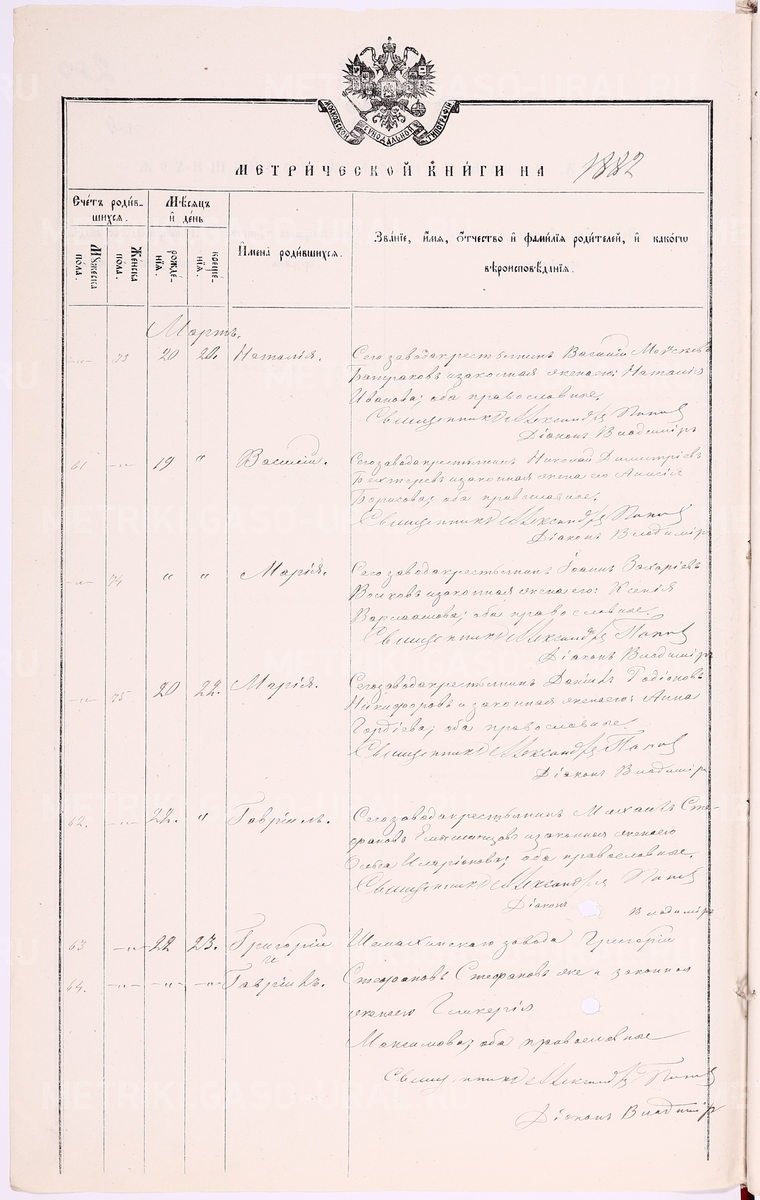 МОСКОВСКОЙ СѴНОДАЛЬНОЙ ТИПОГРАФІИ
МЕТРИ́ЧЕСКОЙ КНИ́ГИ НА 1882
Сче́тъ роди́вшихся.
Мѣсяцъ и де́нь
Имена̀ роди́вшихся.
Зва́нїе, и́мя, ѻ́тчество и҆ фами́лїя роди́телей, и҆ како́гѡ
вѣроисповѣ́данїя.
Мꙋ́жеска по́ла.
Же́нска по́ла.
рожде́нїя.
креще́нїя.
Мартъ.
-"- 73 20 20. Наталія. Сего завода крестьянинъ Василій Моѵсеевъ
Батраковъ и законная жена его: Наталія
Иванова; оба православные.
Священникъ Александръ Поповъ
Діаконъ Владиміръ
61 -"- 19 " Василій. Сего завода крестьянинъ Николай Димитріевъ
Бехтеревъ и законная жена его Анисія
Борисова; оба православные.
Священникъ Александръ Поповъ
Діаконъ Владиміръ
-"- 74 " " Марія. Сего завода крестьянинъ Іоаннъ Захаріевъ
Волковъ и законная жена его: Ксенія
Варлаамова; оба православные.
Священникъ Александръ Поповъ
Діаконъ Владиміръ
-"- 75 20 22. Марія. Сего завода крестьянинъ Даніилъ Родіоновъ
Никифоровъ и законная жена его: Анна
Гордіева; оба православные
Священникъ Александръ Поповъ
Діаконъ Владиміръ
62. -"- 22. " Гавріилъ. Сего завода крестьянинъ Михаилъ Сте-
фановъ и законная жена его
Ольга Иларіонова; оба православные.
Священникъ Александръ Поповъ
Діаконъ Владиміръ
63 -"- 22 23. Григорій Шемахинскаго завода Григорій
и
64. -"- -"- -"- Гавріилъ. Стефановъ Стефановъ же и законная
жена его Гликерія
Максимова; оба православные
Священникъ Александръ Поповъ
Діаконъ Владиміръ
METRIKI.GASO-URAL.RU